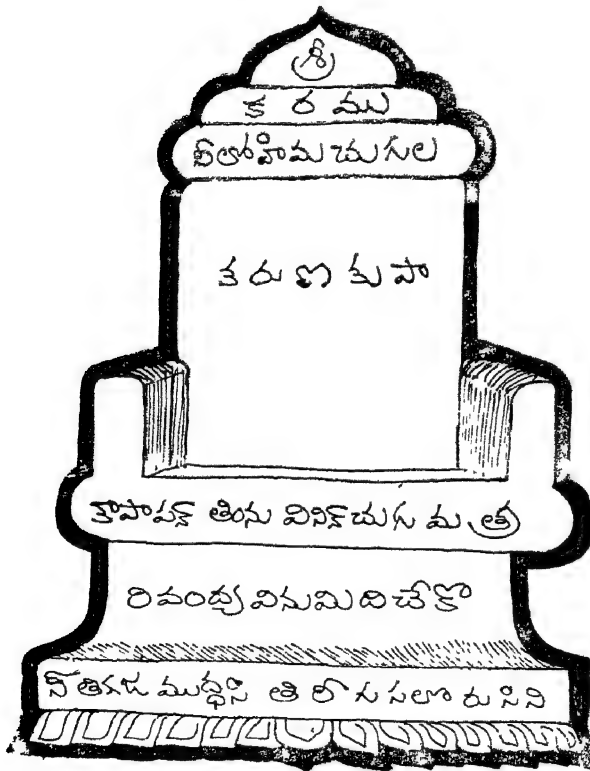 శ్రీ
క ర ము
విలోహిమ చుగుల
క రు ణ కు పా
కాపాపక్ తింను వినిక్ చుగు మ త్ర
రి వంద్య వినుమిది చేకొ
నీ తిగజ ముద్ధసి తి రో గు సలొ రు సి ని